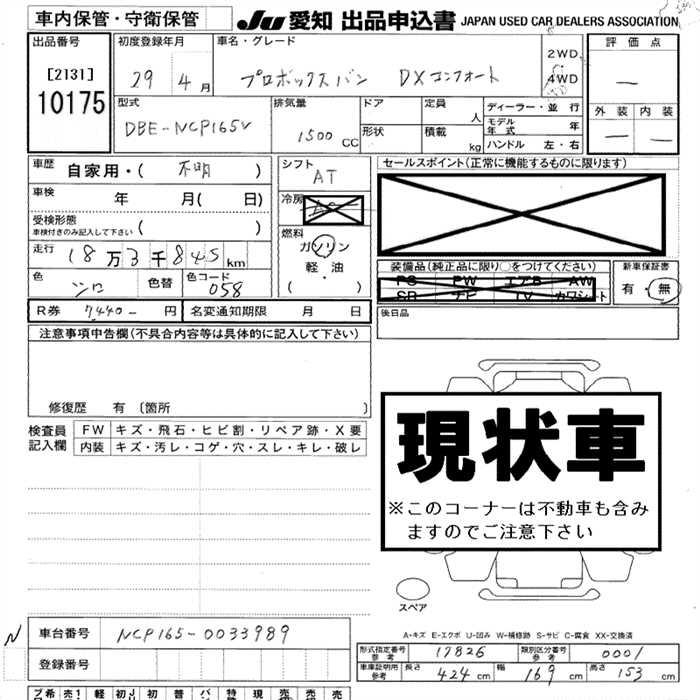 車内保管・守衛保管
JU 愛知 出品申込書 JAPAN USED CAR DEALERS ASSOCIATION
出品番号
[2131]
10175
初度登録年月
29 年 4 月
車名・グレード
プロボックスバン DXコンフォート
2WD
4WD
評価点
—
外装 内装
— —
型式
DBE-NCP165V
排気量
1500 CC
ドア
形状
定員 人
積載 kg
ディーラー・並行
モデル年式 年
ハンドル 左・右
車歴 自家用・( 不明 )
車検 年 月( 日)
受検形態
車検付きのみ記入して下さい ( )
走行 18万3千845km
色 シロ 色替 色コード 058
シフト
AT
冷房
燃料
ガソリン
軽油
( )
セールスポイント(正常に機能するものに限ります)
装備品(純正品に限り○をつけてください)
PS PW エアB AW
SR ナビ TV カワシート
新車保証書
有・無
後日品
R券 7440- 円 名変通知期限 月 日
注意事項申告欄(不具合内容等は具体的に記入して下さい)
修復歴 有 〔箇所 〕
検査員記入欄
FW キズ・飛石・ヒビ割・リペア跡・X要
内装 キズ・汚レ・コゲ・穴・スレ・キレ・破レ
現状車
※このコーナーは不動車も含み
ますのでご注意下さい
スペア
A-キズ E-エクボ U-凹み W-補修跡 S-サビ C-腐食 XX-交換済
N 車台番号 NCP165-0033989
登録番号
形式指定番号参考 17826 類別区分番号参考 0001
車庫証明用参考 長さ 424cm 幅 169cm 高さ 153cm